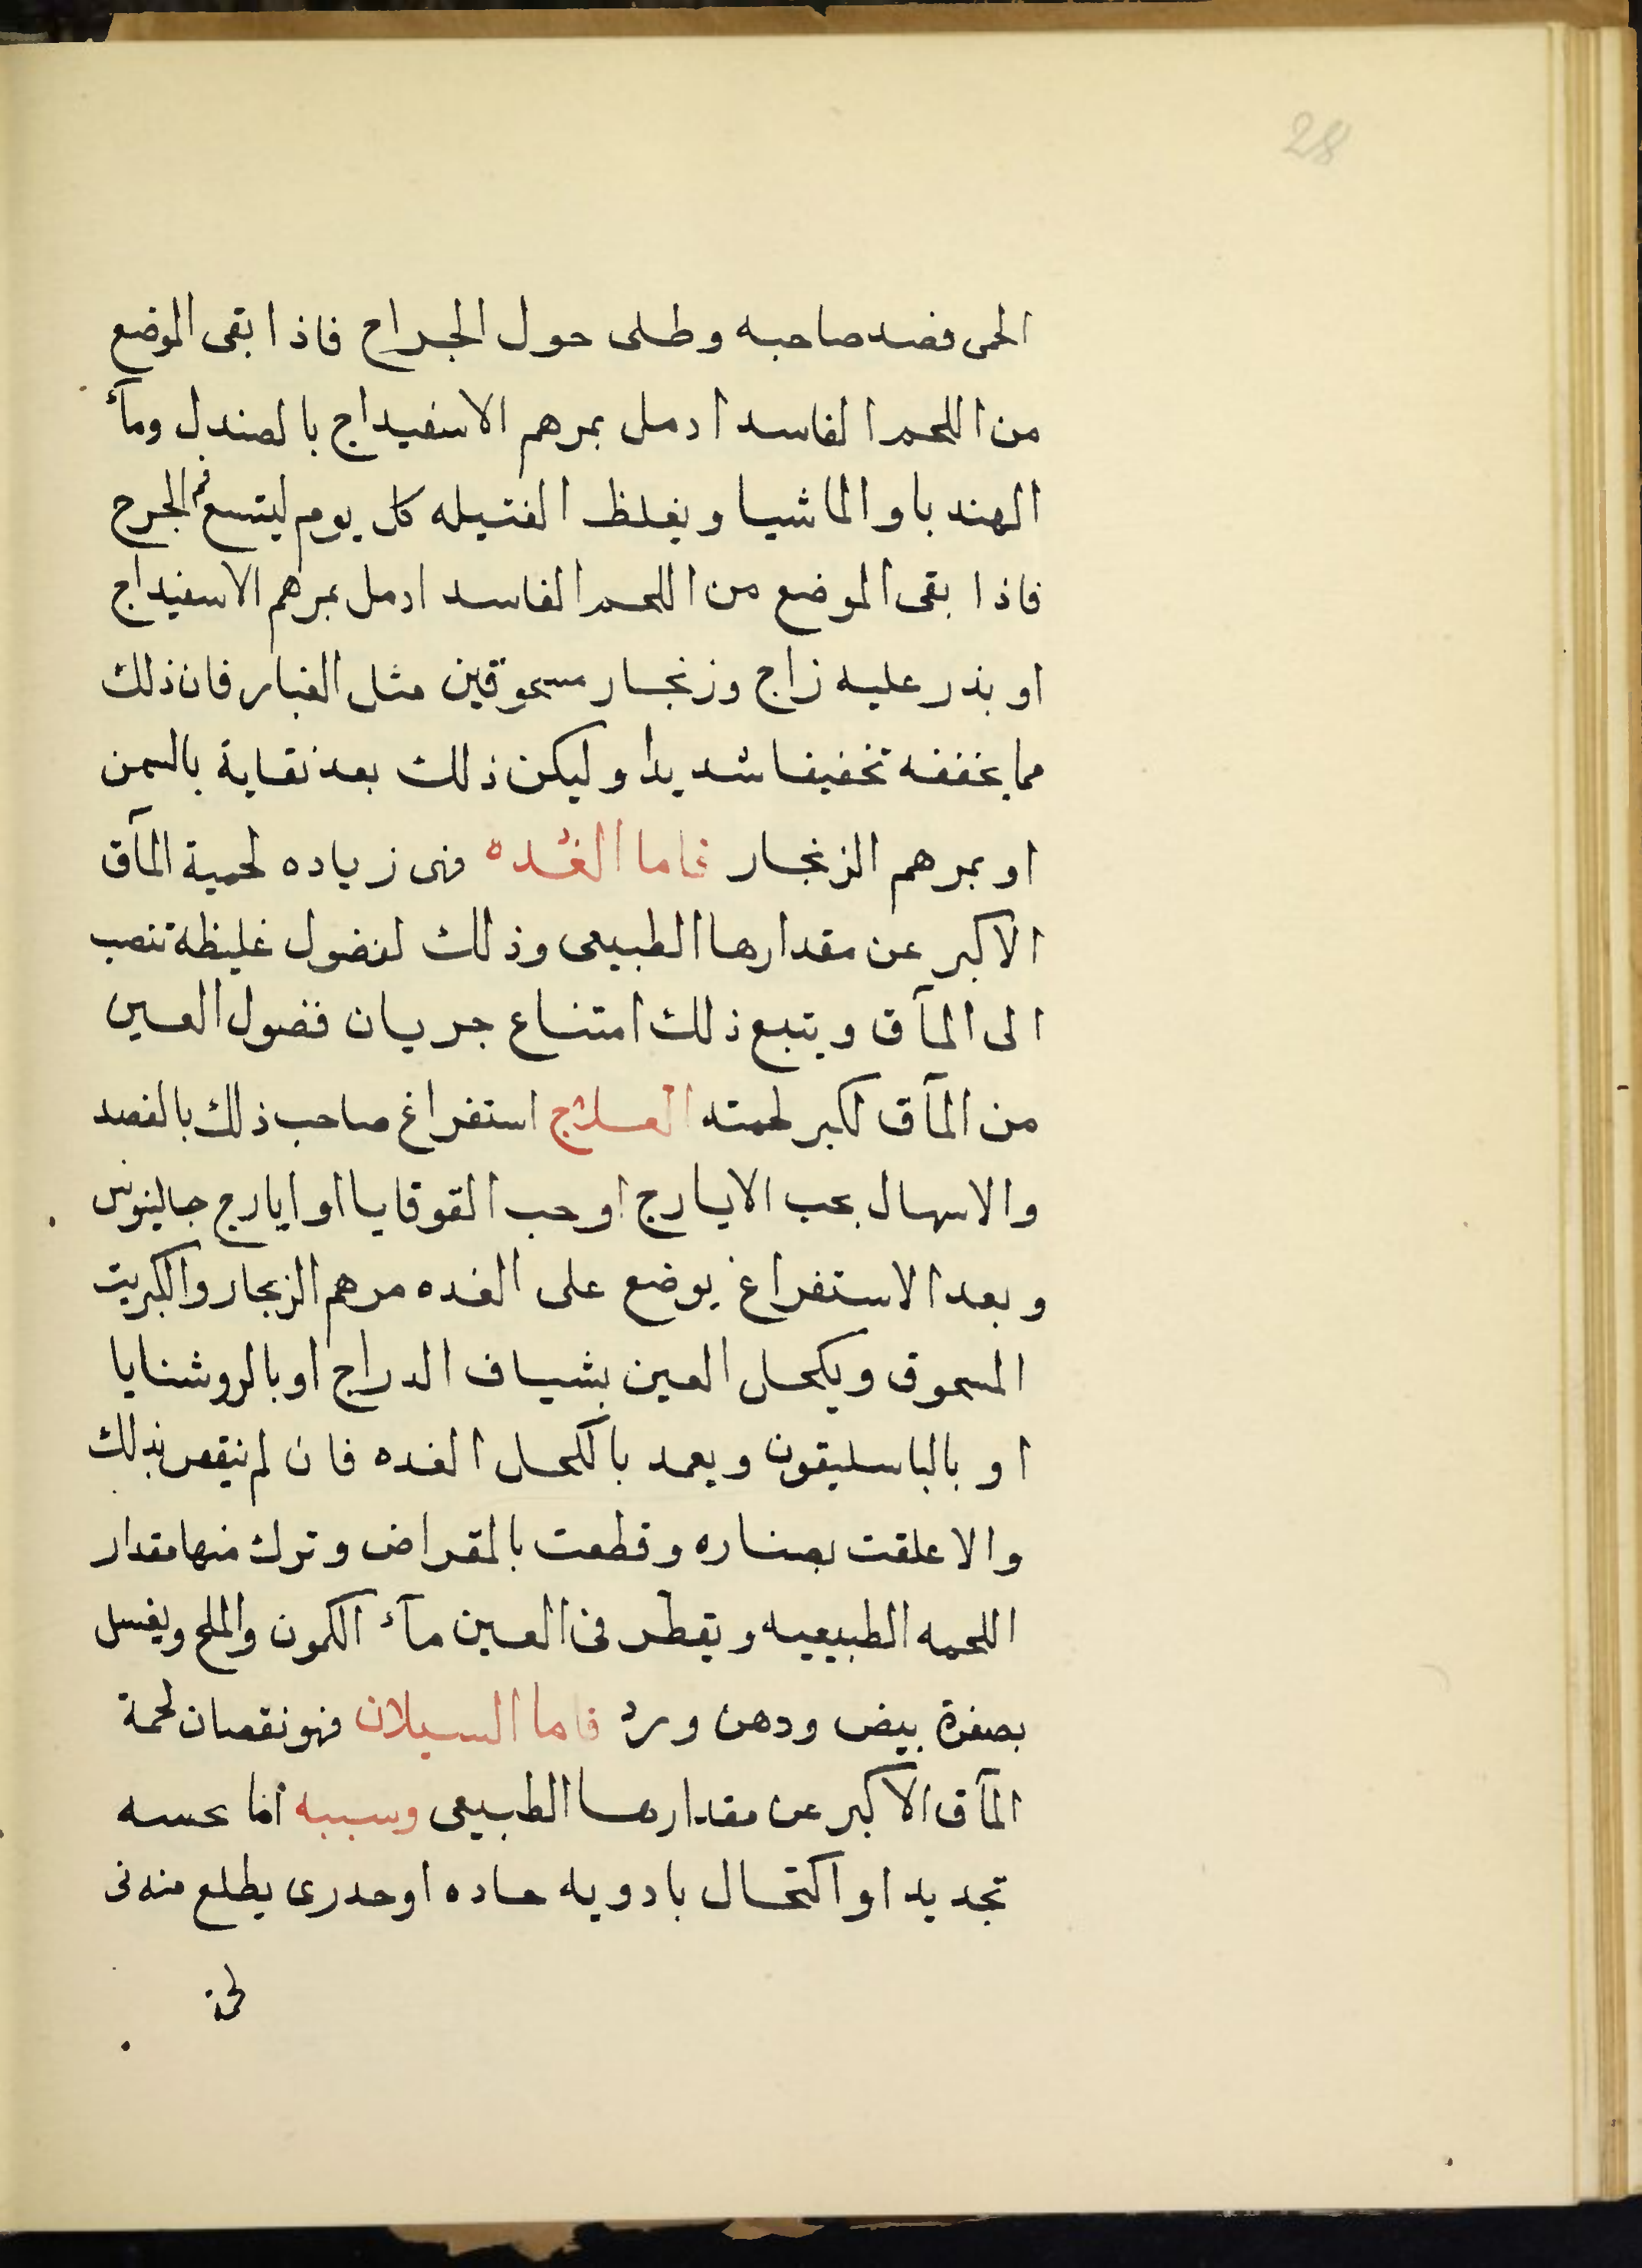 28
الحمى فصد صاحبه وطلى حول الجراح فاذا بقى الموضع
من اللحم الفاسد ادمل بمرهم الاسفيداج بالصندل ومآء
الهندبا والماشيا ويغلظ الفتيله كل يوم ليتسع فم الجرح
فاذا بقى الموضع من اللحم الفاسد ادمل بمرهم الاسفيداج
او بذر عليه زاج وزنجار مسحوقين مثل الغبار فان ذلك
مما يخففه تخفيفا شديدا وليكن ذلك بعد نقاية بالسمن
او بمرهم الزنجار فاما الغده فهى زياده لحمية المآق
الاكبر عن مقدارها الطبيعى وذلك لفضول غليظه تنصب
الى المآق ويتبع ذلك امتناع جريان فضول العين
من المآق لكبر لحمته العلاج استفراغ صاحب ذلك بالفصد
والاسهال بحب الايارج او حب القوقايا او ايارج جالينوس
وبعد الاستفراغ يوضع على الغده مرهم الزنجار والكبريت
المسحوق ويكحل العين بشياف الدراج او بالروشنايا
او بالباسليقون ويعمد بالكحل الغده فان لم ينقص بذلك
والا علقت بصناره وقطعت بالمقراض وترك منها مقدار
اللحمه الطبيعيه ويقطر فى العين مآء الكمون والملح ويغسل
بصفرة بيض ودهن ورد فاما السيلان فهو نقصان لحمة
المآق الاكبر عن مقدارها الطبيعى وسببه اما بحسه
تجديد او اكتحال بادويه حاده او جدرى يطلع منه فى